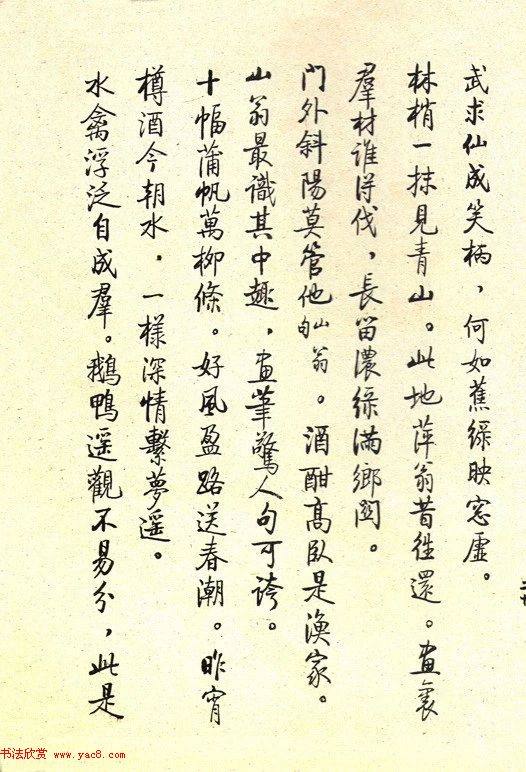 武求仙成笑柄，何如蕉綠映窓虛。
林梢一抹見青山。此地萍翁昔往還。畫裏
羣材誰得伐，長留濃綠滿鄉關。
門外斜陽莫管他山翁句。酒酣高臥是漁家。
山翁最識其中趣，畫筆驚人句可誇。
十幅蒲帆萬柳條。好風盈路送春潮。昨宵
樽酒今朝水，一樣深情繫夢遥。
水禽浮泛自成羣。鵝鴨遥觀不易分，此是
书法欣赏 www.yac8.com